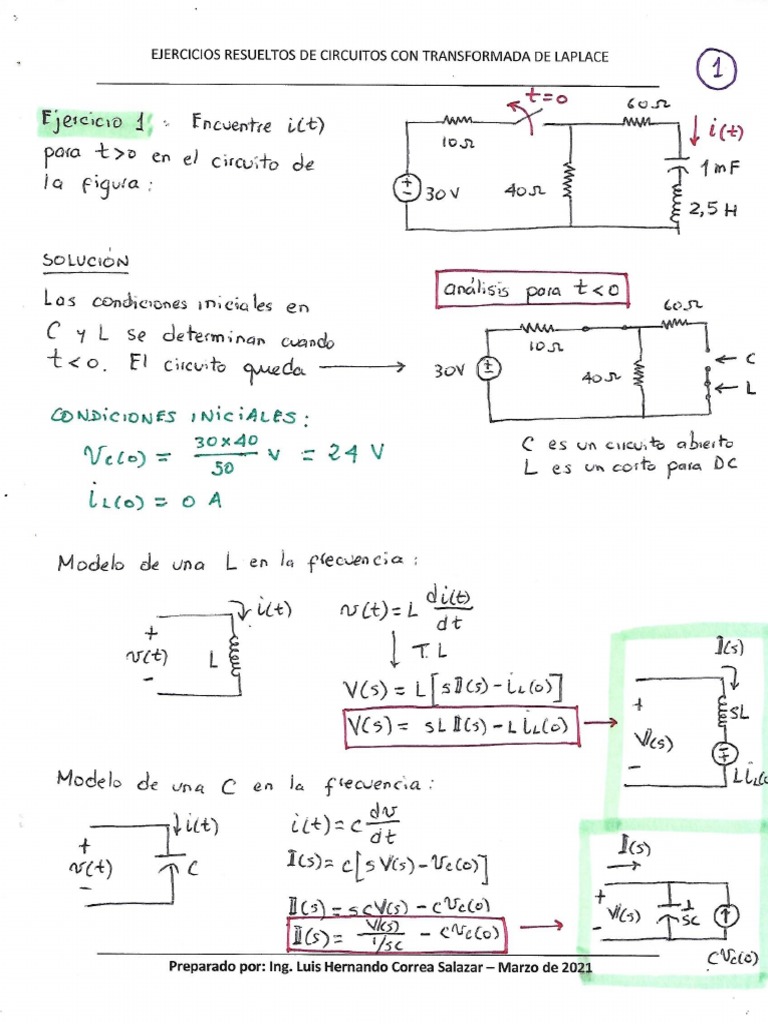 EJERCICIOS RESUELTOS DE CIRCUITOS CON TRANSFORMADA DE LAPLACE
1
Ejercicio 1: Encuentre i(t)
para t>0 en el circuito de
la figura:
t=0
10Ω
60Ω
i(t)
30V
40Ω
1mF
2,5 H
SOLUCIÓN
Las condiciones iniciales en
C y L se determinan cuando
t<0. El circuito queda
análisis para t<0
60Ω
10Ω
30V
40Ω
C
L
C es un circuito abierto
L es un corto para DC
CONDICIONES INICIALES:
Vc(0) = 30x40/50 V = 24 V
iL(0) = 0 A
Modelo de una L en la frecuencia:
i(t)
+
v(t)
-
L
v(t)=L di(t)/dt
T.L
V(s) = L[sI(s)-iL(0)]
V(s) = sLI(s)-LiL(0)
I(s)
+
V(s)
-
sL
LiL(0
Modelo de una C en la frecuencia:
i(t)
+
v(t)
-
C
i(t)=c dv/dt
I(s)=c[sV(s)-Vc(0)]
I(s)=scV(s)-cVc(0)
I(s)= V(s)/1/sc - cVc(0)
I(s)
+
V(s)
-
1/sc
cVc(0)
Preparado por: Ing. Luis Hernando Correa Salazar – Marzo de 2021